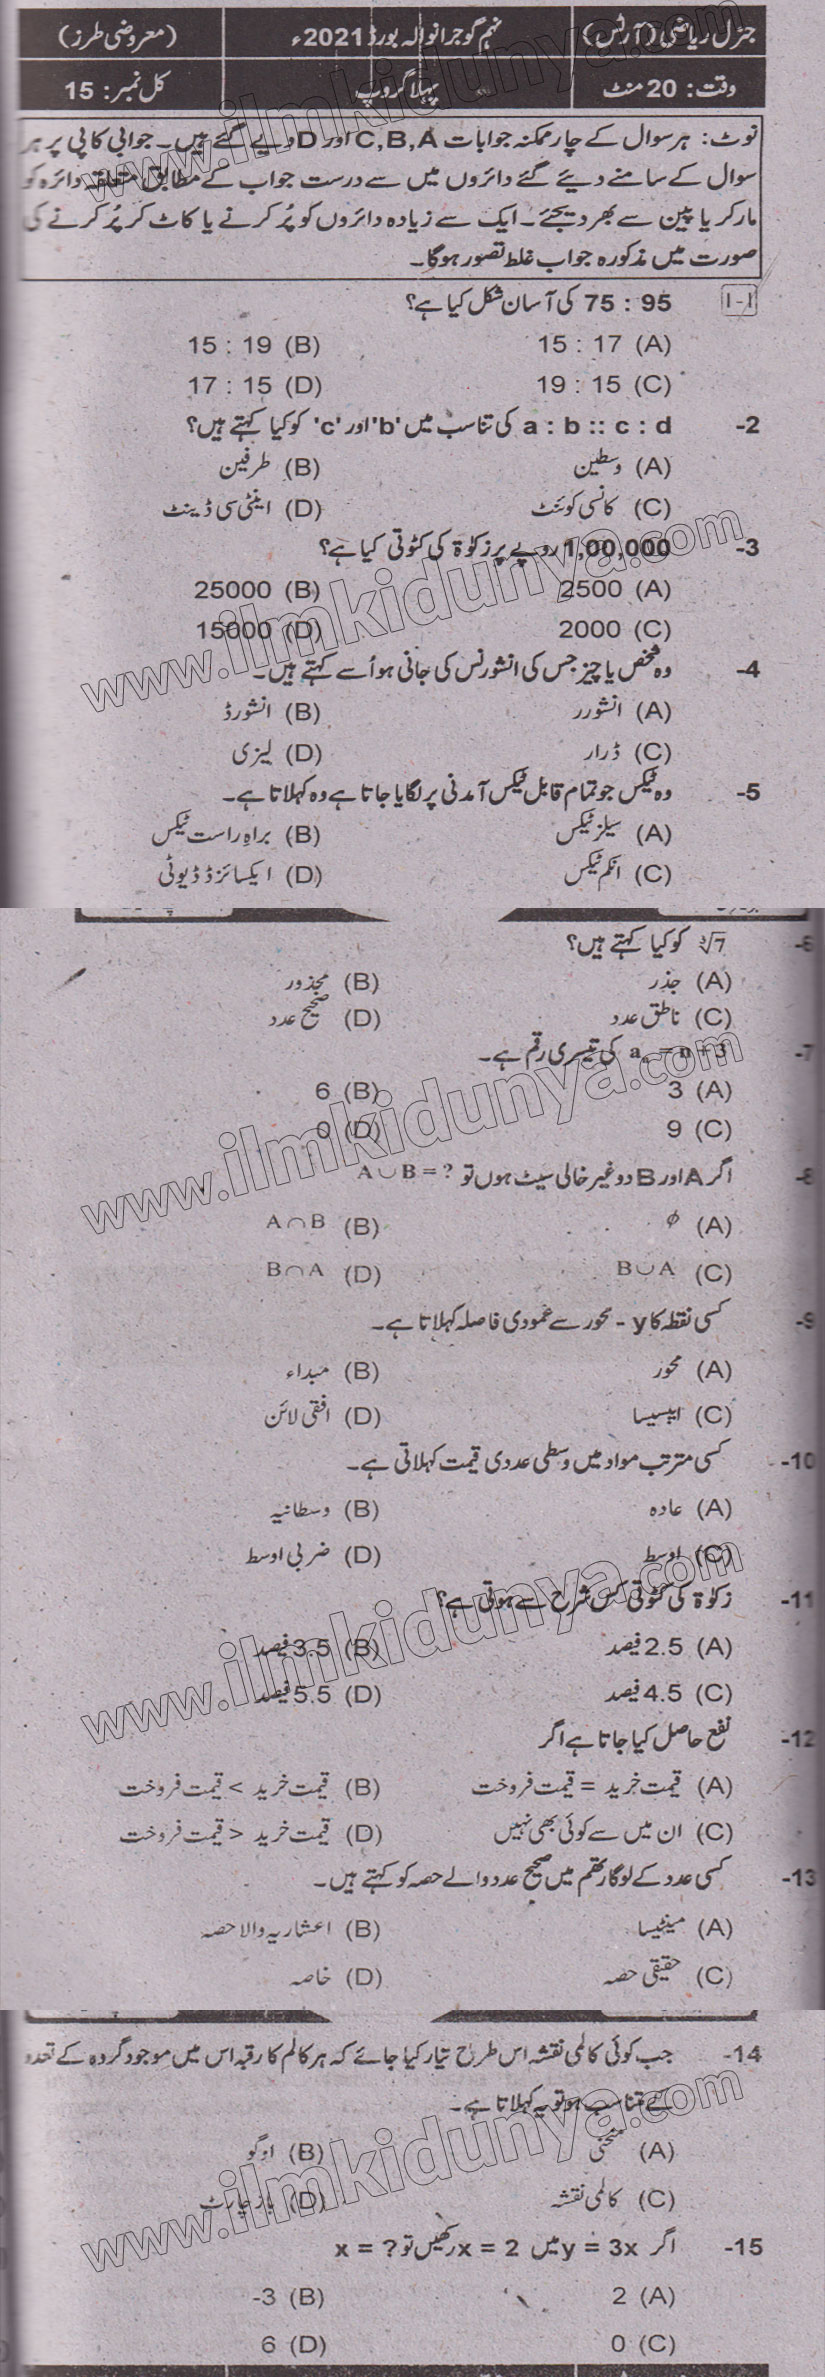 جنرل ریاضی (آرٹس) نہم گوجرانوالہ بورڈ 2021ء (معروضی طرز)
وقت: 20 منٹ پہلا گروپ کل نمبر: 15
نوٹ: ہر سوال کے چار ممکنہ جوابات C,B,A اور D دیے گئے ہیں۔ جوابی کاپی پر ہر
سوال کے سامنے دیئے گئے دائروں میں سے درست جواب کے مطابق متعلقہ دائرہ کو
مارکر یا پین سے بھر دیجئے۔ ایک سے زیادہ دائروں کو پُر کرنے یا کاٹ کر پُر کرنے کی
صورت میں مذکورہ جواب غلط تصور ہوگا۔
1-1 75 : 95 کی آسان شکل کیا ہے؟
(A) 15 : 17 (B) 15 : 19
(C) 19 : 15 (D) 17 : 15
-2 a : b :: c : d کی تناسب میں 'b' اور 'c' کو کیا کہتے ہیں؟
(A) وسطین (B) طرفین
(C) کانسی کوئنٹ (D) اینٹی سی ڈینٹ
-3 1,00,000 روپے پر زکوٰۃ کی کٹوتی کیا ہے؟
(A) 2500 (B) 25000
(C) 2000 (D) 15000
-4 وہ شخص یا چیز جس کی انشورنس کی جانی ہو اُسے کہتے ہیں۔
(A) انشورر (B) انشورڈ
(C) ڈرار (D) لیزی
-5 وہ ٹیکس جو تمام قابل ٹیکس آمدنی پر لگایا جاتا ہے وہ کہلاتا ہے۔
(A) سیلز ٹیکس (B) براہِ راست ٹیکس
(C) انکم ٹیکس (D) ایکسائزڈ ڈیوٹی
-6 ∛7 کو کیا کہتے ہیں؟
(A) جذر (B) مجذور
(C) ناطق عدد (D) صحیح عدد
-7 aₙ = n + 3 کی تیسری رقم ہے۔
(A) 3 (B) 6
(C) 9 (D) 0
-8 اگر A اور B دو غیر خالی سیٹ ہوں تو A∪B = ?
(A) ϕ (B) A∩B
(C) B∪A (D) B∩A
-9 کسی نقطہ کا y - محور سے عمودی فاصلہ کہلاتا ہے۔
(A) محور (B) مبداء
(C) ایبسیسا (D) افقی لائن
-10 کسی مترتب مواد میں وسطی عددی قیمت کہلاتی ہے۔
(A) عادہ (B) وسطانیہ
(C) اوسط (D) ضربی اوسط
-11 زکوٰۃ کی کٹوتی کس شرح سے ہوتی ہے؟
(A) 2.5 فیصد (B) 3.5 فیصد
(C) 4.5 فیصد (D) 5.5 فیصد
-12 نفع حاصل کیا جاتا ہے اگر
(A) قیمت خرید = قیمت فروخت (B) قیمت خرید > قیمت فروخت
(C) ان میں سے کوئی بھی نہیں (D) قیمت خرید < قیمت فروخت
-13 کسی عدد کے لوگارتھم میں صحیح عدد والے حصہ کو کہتے ہیں۔
(A) مینٹیسا (B) اعشاریہ والا حصہ
(C) حقیقی حصہ (D) خاصہ
-14 جب کوئی کالمی نقشہ اس طرح تیار کیا جائے کہ ہر کالم کا رقبہ اس میں موجود گروہ کے تعدد
کے متناسب ہو تو یہ کہلاتا ہے۔
(A) منحنی (B) اوگو
(C) کالمی نقشہ (D) بار چارٹ
-15 اگر y = 3x میں x = 2 رکھیں تو x = ?
(A) 2 (B) -3
(C) 0 (D) 6
www.ilmkidunya.com
www.ilmkidunya.com
www.ilmkidunya.com
www.ilmkidunya.com
www.ilmkidunya.com